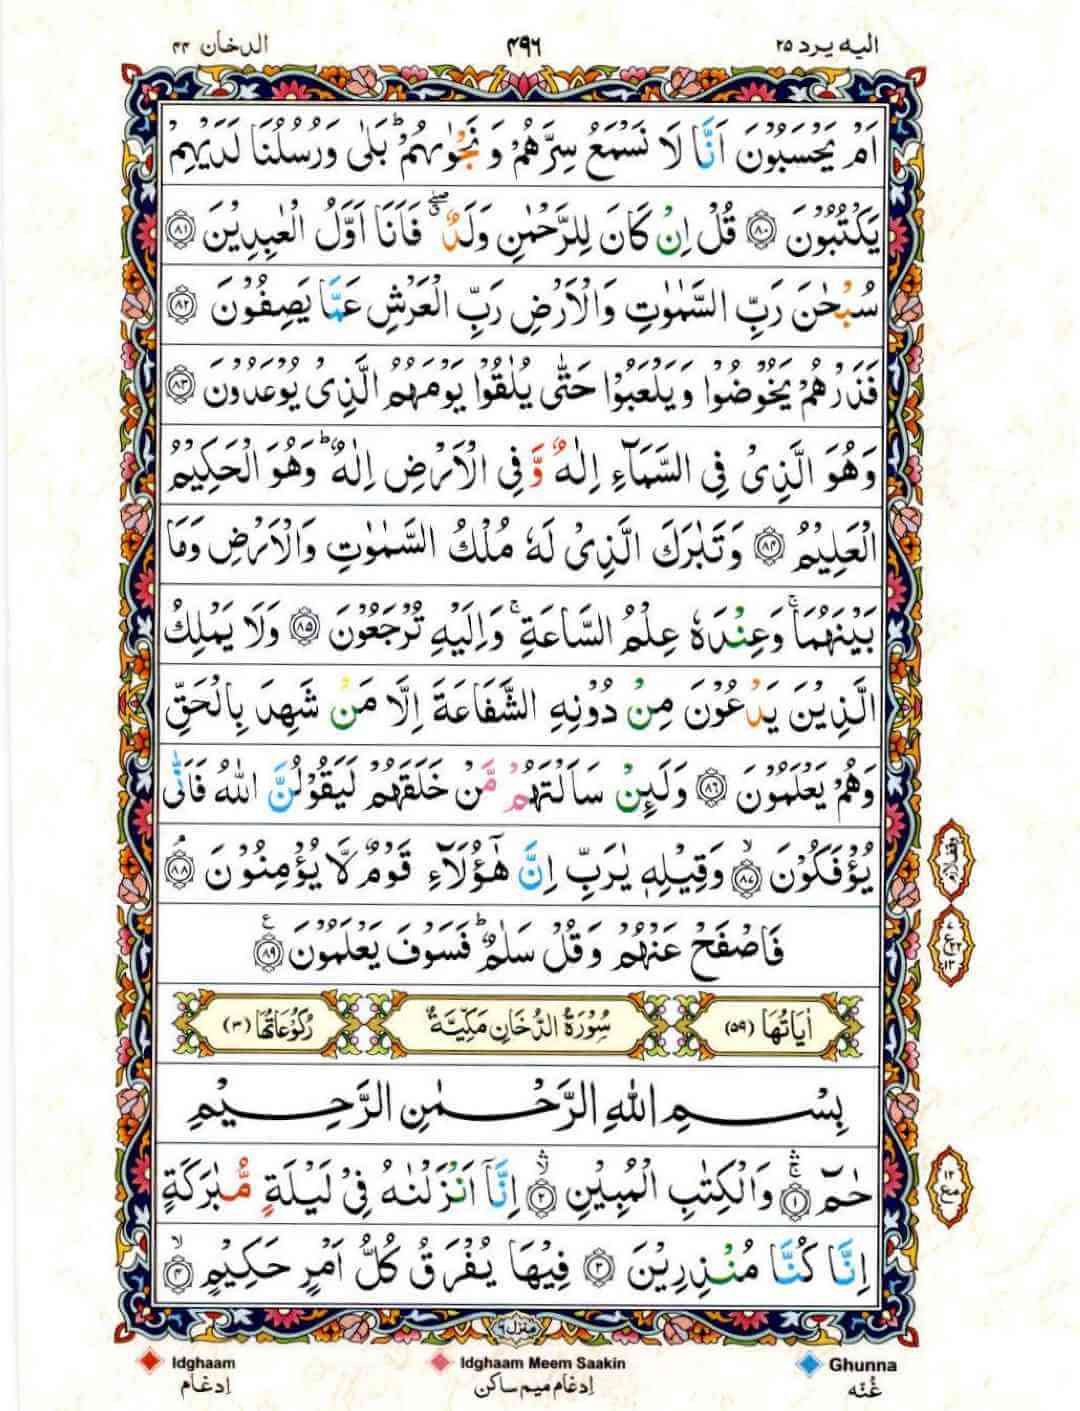 اليه يرد ٢٥
٤٩٦
الدخان ٤٤
اَمْ يَحْسَبُوْنَ اَنَّا لَا نَسْمَعُ سِرَّهُمْ وَ نَجْوٰىهُمْ ؕ بَلٰى وَرُسُلُنَا لَدَيْهِمْ
يَكْتُبُوْنَ ﴿٨٠﴾ قُلْ اِنْ كَانَ لِلرَّحْمٰنِ وَلَدٌ ۖ فَاَنَا اَوَّلُ الْعٰبِدِيْنَ ﴿٨١﴾
سُبْحٰنَ رَبِّ السَّمٰوٰتِ وَالْاَرْضِ رَبِّ الْعَرْشِ عَمَّا يَصِفُوْنَ ﴿٨٢﴾
فَذَرْهُمْ يَخُوْضُوْا وَيَلْعَبُوْا حَتّٰى يُلٰقُوْا يَوْمَهُمُ الَّذِىْ يُوْعَدُوْنَ ﴿٨٣﴾
وَهُوَ الَّذِىْ فِى السَّمَآءِ اِلٰهٌ وَّ فِى الْاَرْضِ اِلٰهٌ ؕ وَهُوَ الْحَكِيْمُ
الْعَلِيْمُ ﴿٨٤﴾ وَتَبٰرَكَ الَّذِىْ لَهٗ مُلْكُ السَّمٰوٰتِ وَالْاَرْضِ وَمَا
بَيْنَهُمَا ۚ وَعِنْدَهٗ عِلْمُ السَّاعَةِ ۚ وَاِلَيْهِ تُرْجَعُوْنَ ﴿٨٥﴾ وَلَا يَمْلِكُ
الَّذِيْنَ يَدْعُوْنَ مِنْ دُوْنِهِ الشَّفَاعَةَ اِلَّا مَنْ شَهِدَ بِالْحَقِّ
وَهُمْ يَعْلَمُوْنَ ﴿٨٦﴾ وَلَئِنْ سَاَلْتَهُمْ مَّنْ خَلَقَهُمْ لَيَقُوْلُنَّ اللّٰهُ فَاَنّٰى
يُؤْفَكُوْنَ ۙ﴿٨٧﴾ وَقِيْلِهٖ يٰرَبِّ اِنَّ هٰٓؤُلَآءِ قَوْمٌ لَّا يُؤْمِنُوْنَ ۘ﴿٨٨﴾
فَاصْفَحْ عَنْهُمْ وَقُلْ سَلٰمٌ ؕ فَسَوْفَ يَعْلَمُوْنَ ﴿٨٩﴾ ع
اٰيَاتُهَا (٥٩) سُوْرَةُ الدُّخَانِ مَكِّيَّةٌ رُكُوْعَاتُهَا (٣)
بِسْمِ اللّٰهِ الرَّحْمٰنِ الرَّحِيْمِ
حٰمٓ ۚ﴿١﴾ وَالْكِتٰبِ الْمُبِيْنِ ۙ﴿٢﴾ اِنَّاۤ اَنْزَلْنٰهُ فِىْ لَيْلَةٍ مُّبٰرَكَةٍ
اِنَّا كُنَّا مُنْذِرِيْنَ ﴿٣﴾ فِيْهَا يُفْرَقُ كُلُّ اَمْرٍ حَكِيْمٍ ۙ﴿٤﴾
منزل ٦
Idghaam
Idghaam Meem Saakin
Ghunna
اِدغَام
اِدغَام مِيم سَاكن
غُنّه